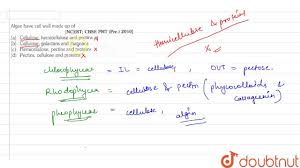 Algae have cell wall made up of
[NCERT; CBSE PMT (Pre.) 2010]
(a) Cellulose, hemicellulose and pectins
(b) Cellulose, galactans and mannans
(c) Hemicellulose, pectins and proteins
(d) Pectins, cellulose and proteins
Hemicellulose & proteins
X
Chlorophyceae = IL = cellulose, OUT = pectose.
Rhodophyceae = cellulose & pectin (phycocolloids & carrageenin)
phaeophyceae = cellulose, algin
doubtnut